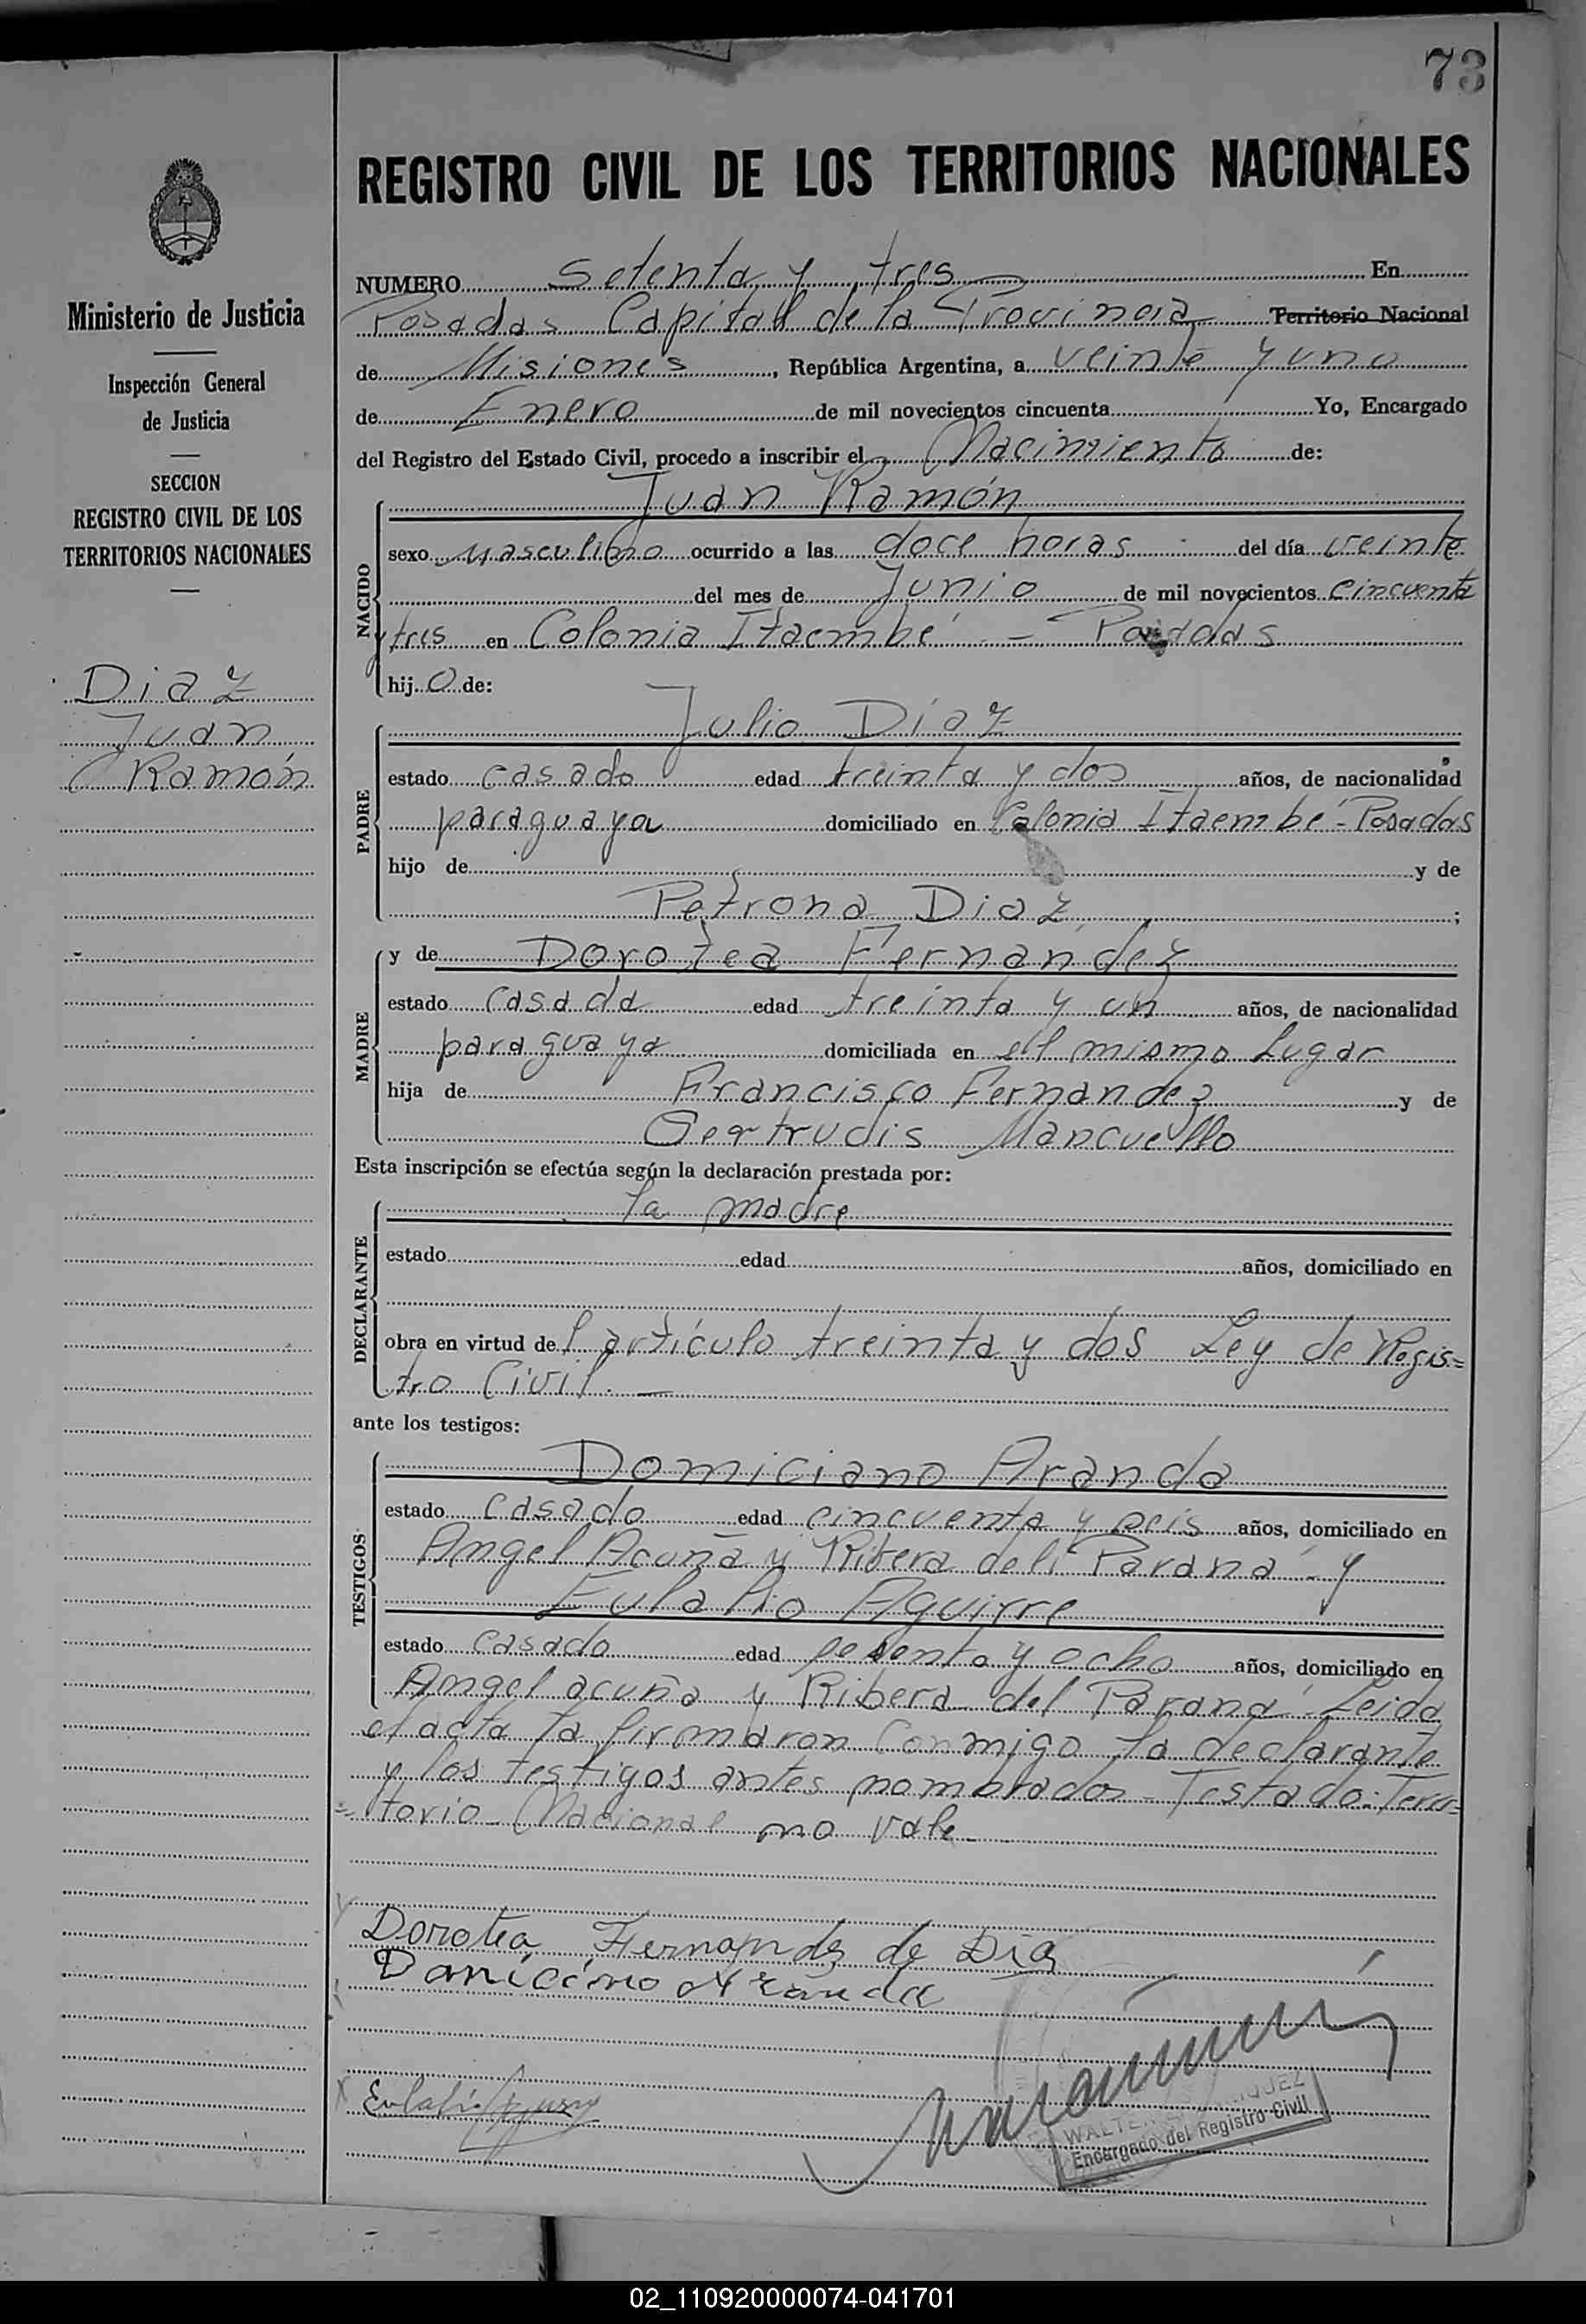 73
REGISTRO CIVIL DE LOS TERRITORIOS NACIONALES
Ministerio de Justicia
Inspección General
de Justicia
SECCION
REGISTRO CIVIL DE LOS
TERRITORIOS NACIONALES
Diaz
Juan
Ramón
NUMERO Setenta y tres En
Posadas Capital de la Provincia Territorio Nacional
de Misiones, República Argentina, a veinte y uno
de Enero de mil novecientos cincuenta Yo, Encargado
del Registro del Estado Civil, procedo a inscribir el Nacimiento de:
NACIDO
Juan Ramón
sexo masculino ocurrido a las doce horas del día veinte
del mes de Junio de mil novecientos cincuenta
y tres en Colonia Itaembé - Posadas
hijo de:
PADRE
Julio Diaz
estado casado edad treinta y dos años, de nacionalidad
paraguaya domiciliado en Colonia Itaembé - Posadas
hijo de y de
Petrona Diaz;
MADRE
y de Dorotea Fernandez
estado casada edad treinta y un años, de nacionalidad
paraguaya domiciliada en el mismo lugar
hija de Francisco Fernandez y de
Gertrudis Mancuello
Esta inscripción se efectúa según la declaración prestada por:
DECLARANTE
la madre
estado edad años, domiciliado en
obra en virtud del artículo treinta y dos Ley de Regis=
tro Civil. -
ante los testigos:
TESTIGOS
Domiciano Aranda
estado casado edad cincuenta y seis años, domiciliado en
Angel Acuña y Ribera del Paraná - y
Eulalio Aguirre
estado casado edad sesenta y ocho años, domiciliado en
Angel acuña y Ribera del Paraná - Leida
el acta la firmaron conmigo la declarante
y los testigos antes nombrados - Testado: Terri=
=torio Nacional no vale
Dorotea Fernandz de Dia
Domiciano Aranda
Eulali
WALTER
Encargado del Registro Civil
02_110920000074-041701